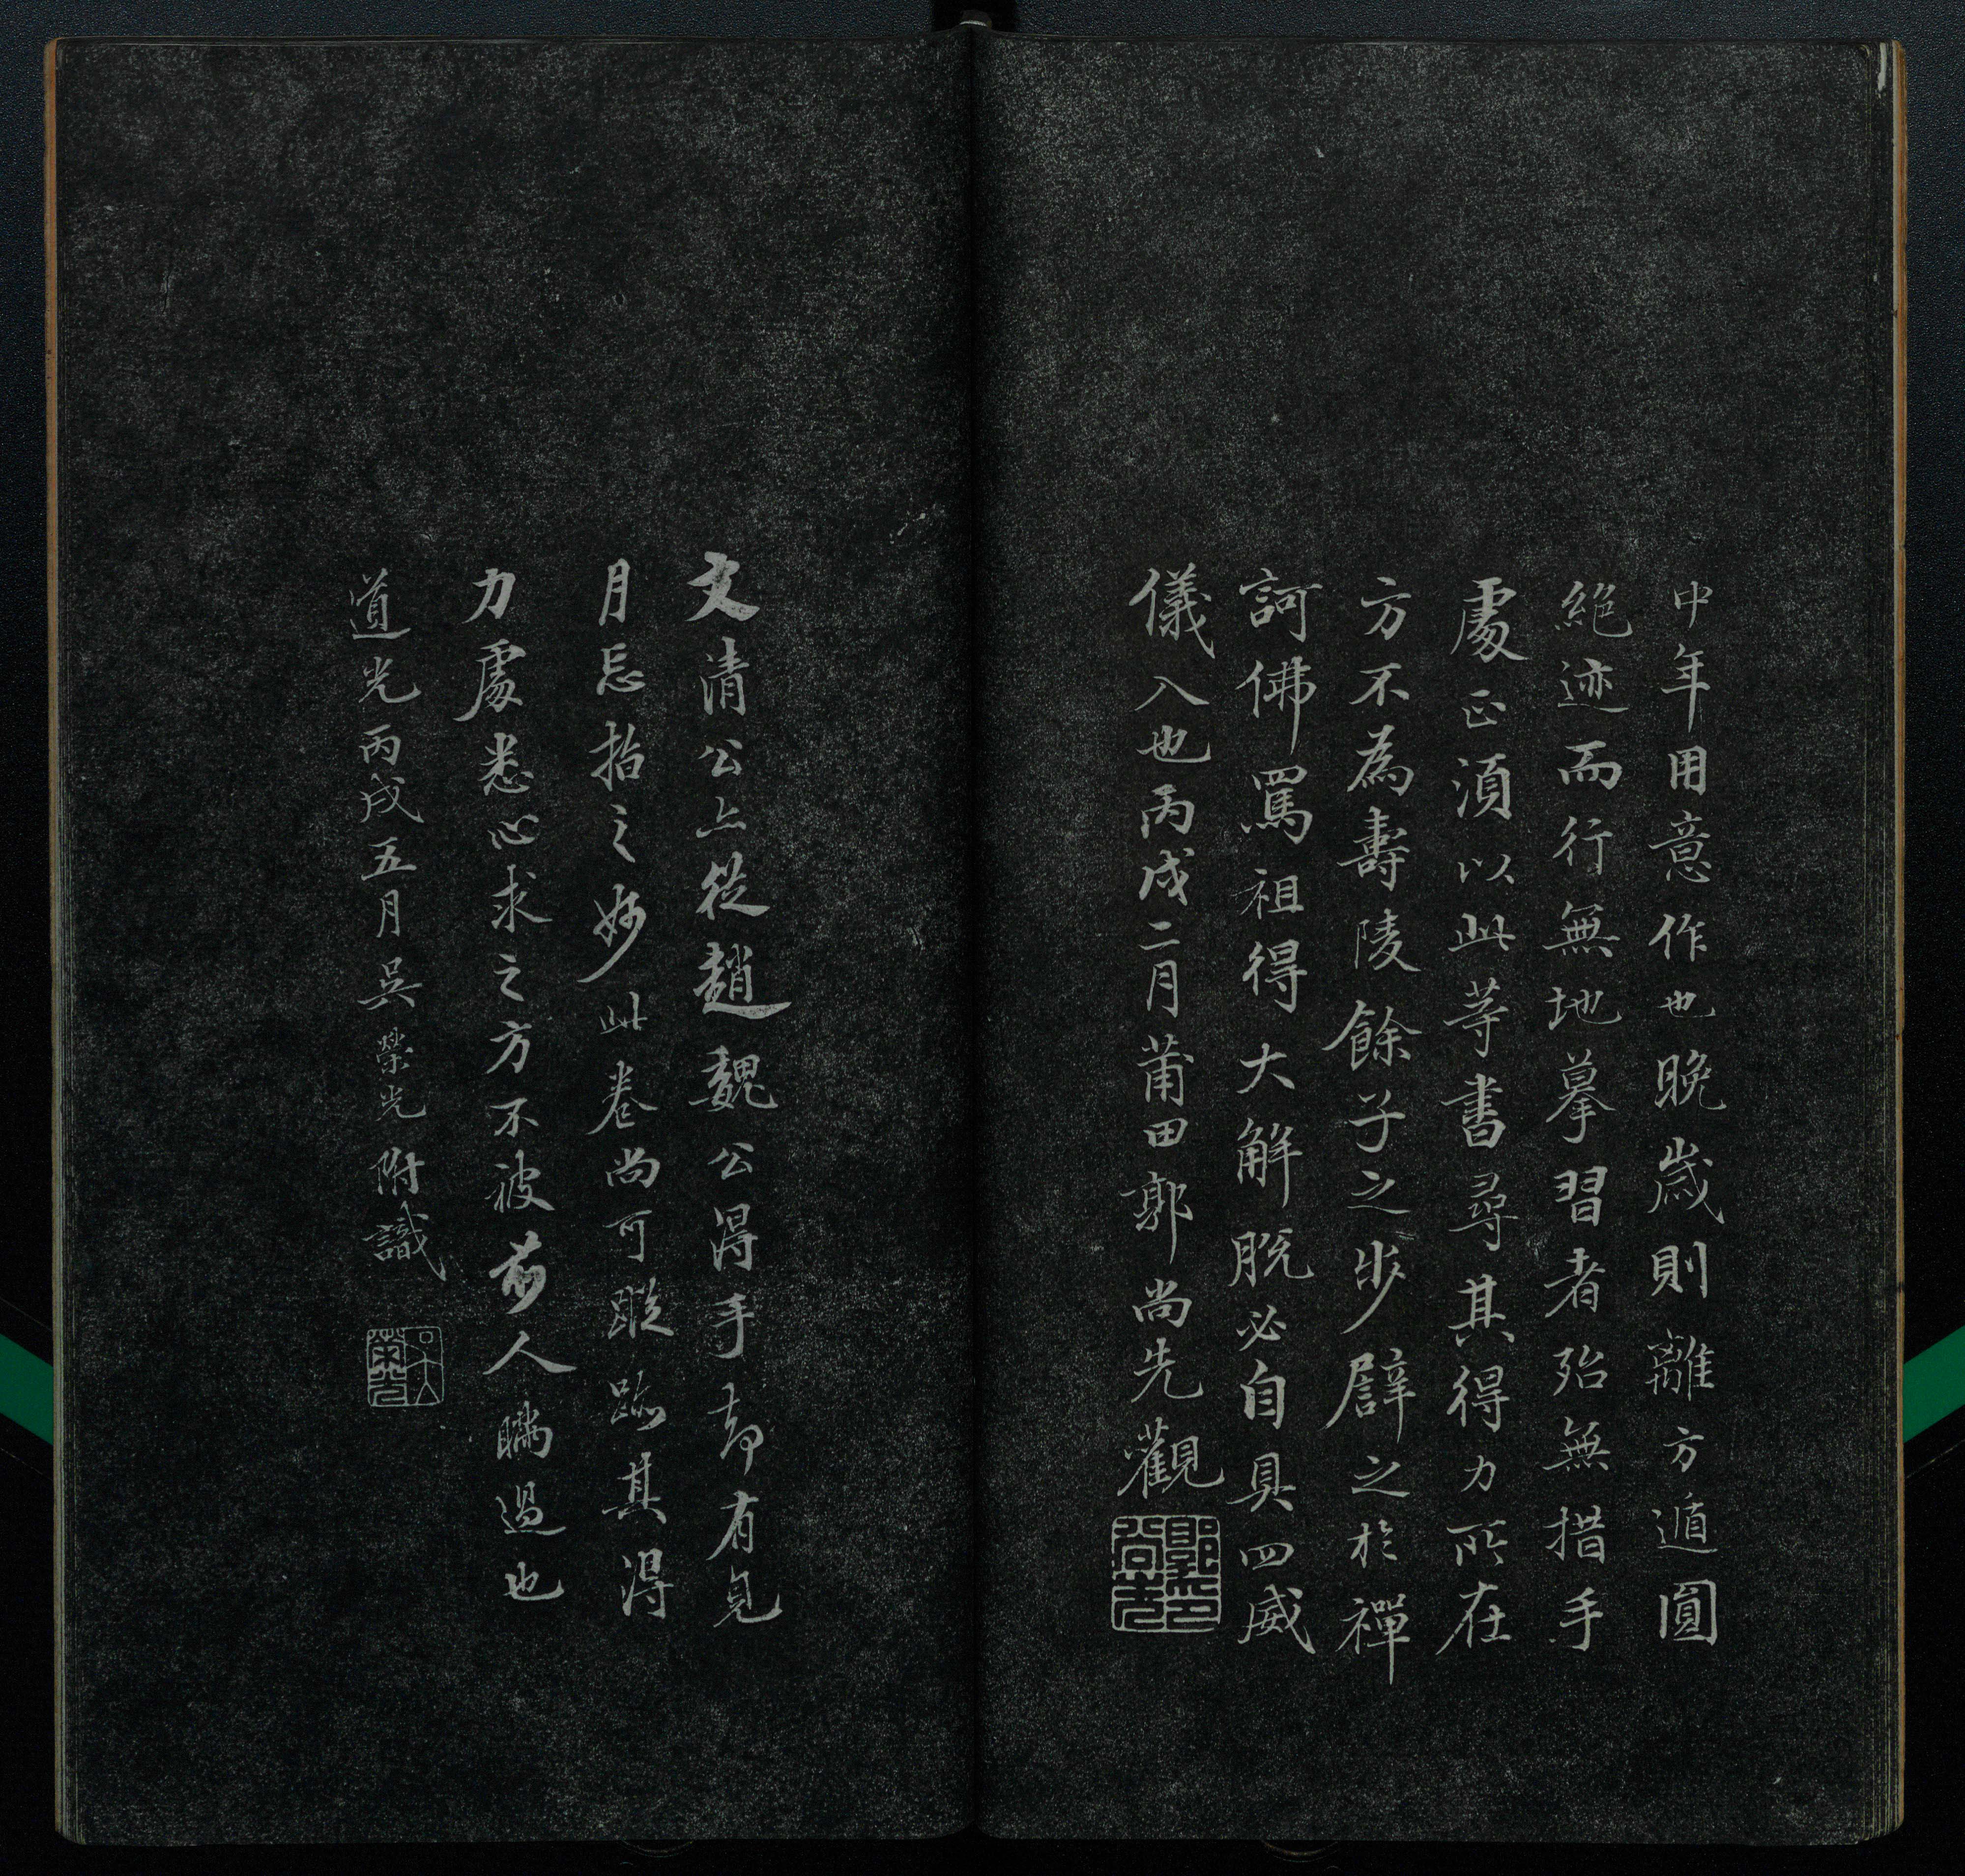 中年用意作也晚歲則離方遁圓
絶迹而行無地摹習者殆無措手
處正須以此等書尋其得力所在
方不為壽陵餘子之步辟之於禪
訶佛罵祖得大解脫必自具四威
儀入也丙戌二月莆田郭尚先觀
郭尚先印
文清公上從趙魏公得手都有見
月忘指之妙此卷尚可蹤跡其得
力處悉心求之方不被前人瞞過也
道光丙戌五月吳榮光附識